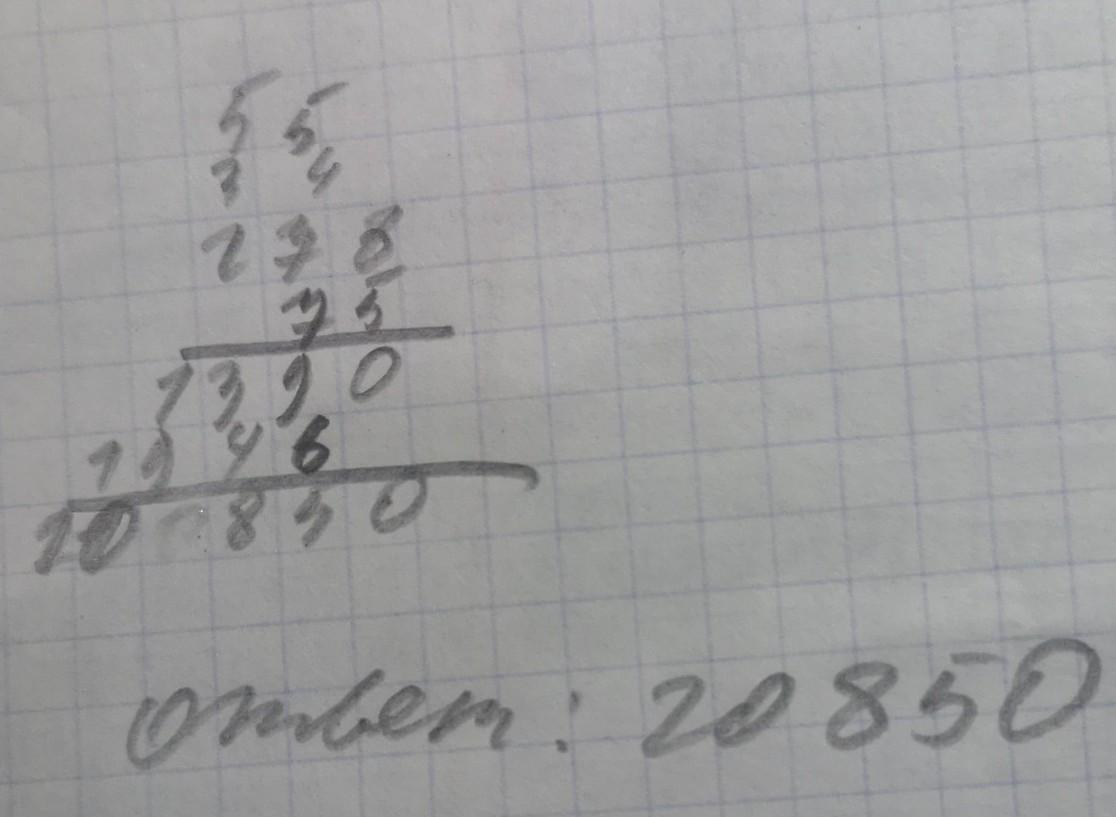 5 5
3 4
278
75
1390
1946
20 850
ответ: 20 850